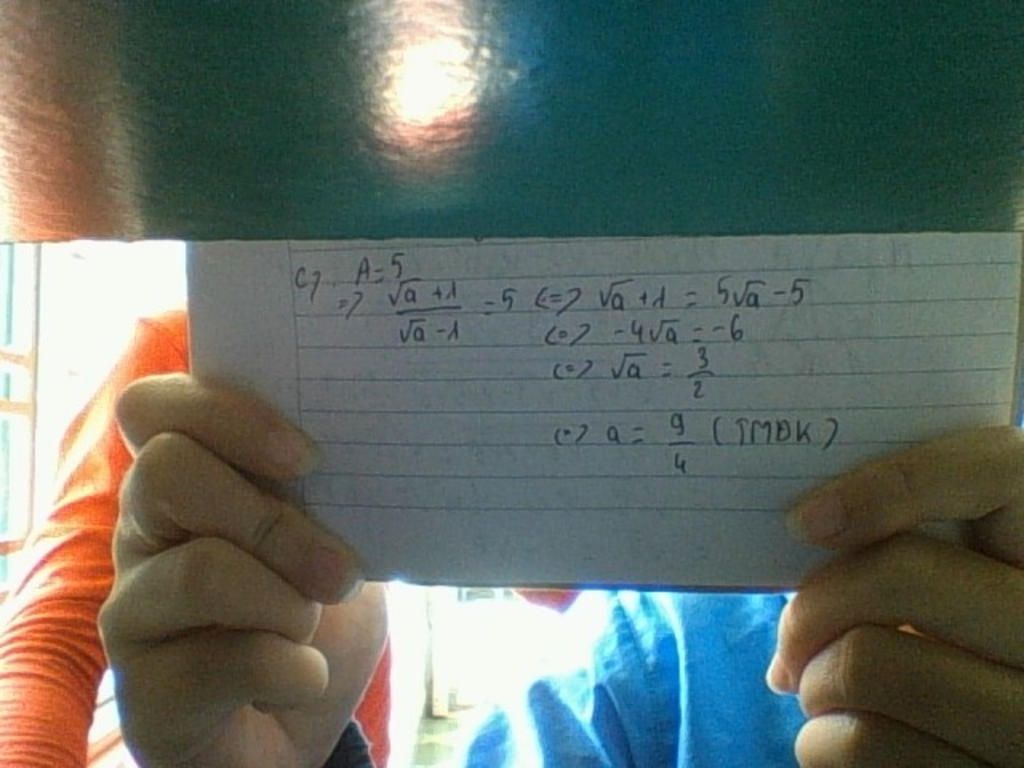 c). A = 5
=> \frac{√a + 1}{√a - 1} = 5 <=> √a + 1 = 5√a - 5
<=> -4√a = -6
<=> √a = \frac{3}{2}
<=> a = \frac{9}{4} (TMĐK)